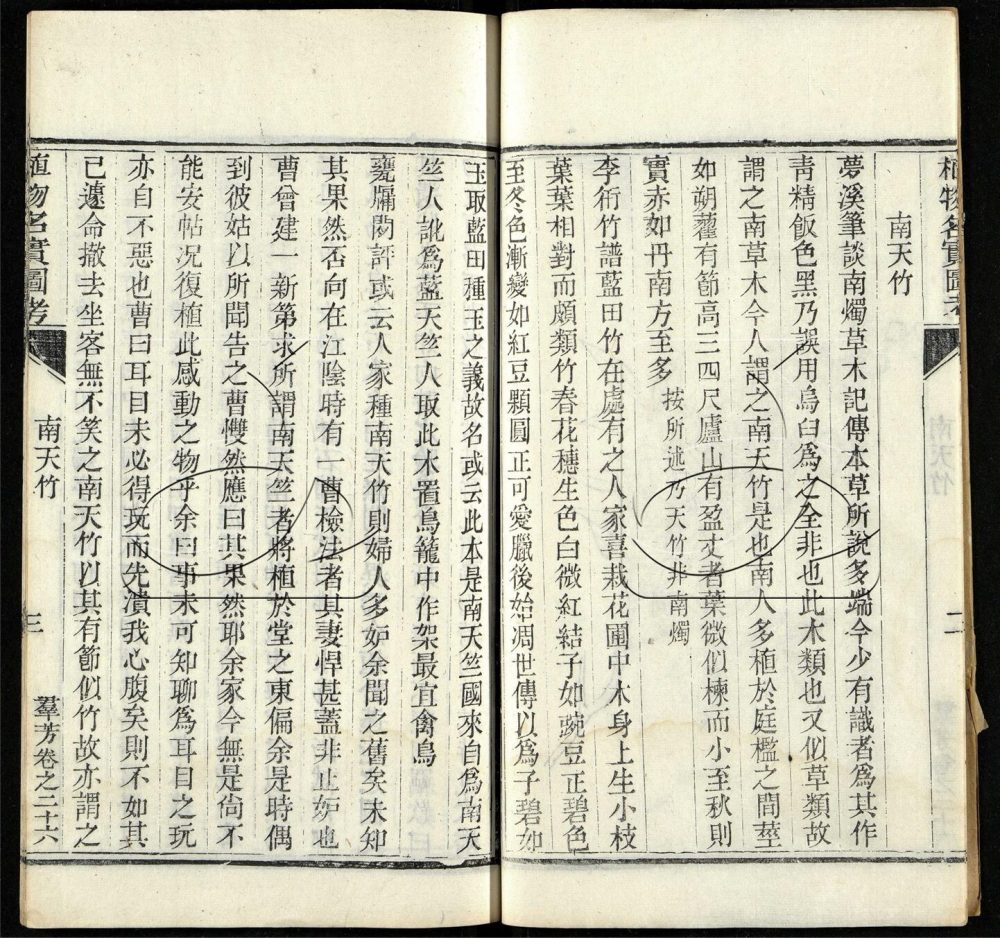 植物名實圖考
南天竹
夢溪筆談南燭草木記傳本草所說多端今少有識者爲其作
靑精飯色黑乃誤用烏臼爲之全非也此木類也又似草類故
謂之南草木今人謂之南天竹是也南人多植於庭檻之間莖
如朔藋有節高三四尺廬山有盈丈者葉微似楝而小至秋則
實赤如丹南方至多按所述乃天竹非南燭
李衎竹譜藍田竹在處有之人家喜栽花圃中木身上生小枝
葉葉相對而頗類竹春花穗生色白微紅結子如豌豆正碧色
至冬色漸變如紅豆顆圓正可愛臘後始凋世傳以爲子碧如
玉取藍田種玉之義故名或云此本是南天竺國來自爲南天
竺人訛爲藍天竺人取此木置鳥籠中作架最宜禽鳥
甕牖閑評或云人家種南天竹則婦人多妒余聞之舊矣未知
其果然否向在江陰時有一曹檢法者其妻悍甚蓋非止妒也
曹曾建一新第求所謂南天竺者將植於堂之東偏余是時偶
到彼姑以所聞告之曹戄然應曰其果然耶余家今無是尙不
能安帖况復植此感動之物乎余曰事未可知聊爲耳目之玩
亦自不惡也曹曰耳目未必得玩而先潰我心腹矣則不如其
已遽命撤去坐客無不笑之南天竹以其有節似竹故亦謂之
植物名實圖考
南天竹
三
羣芳卷之二十六